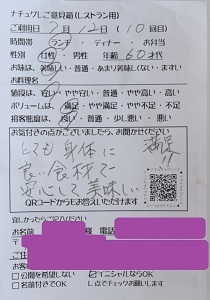 ナチュグしご意見箱(レストラン用)
ご利用日 2月12日(10回目)
時間帯 ランチ ・ ディナー ・ お弁当
性別 女性・ 男性 年齢 60才代
お味は、美味しい・普通・あまり美味しくない・まずい
お料理名
値段は、安い・やや安い 普通 やや高い・高い
ボリュームは、満足・やや満足 普通 やや不足・不足
接客態度は、良い 普通 少し悪い ・ 悪い
お気付きの点がございましたら、お聞かせください
とても身体に 満足!!
良い食材で
安心して美味しい
QRコードからもお答えいただけます
宜しかったらご記入ください
お名前 様 電話
〒
ご住
□公開を希望しない ☑イニシャルならOK
□名前付きでOK レ点でチェックお願いします